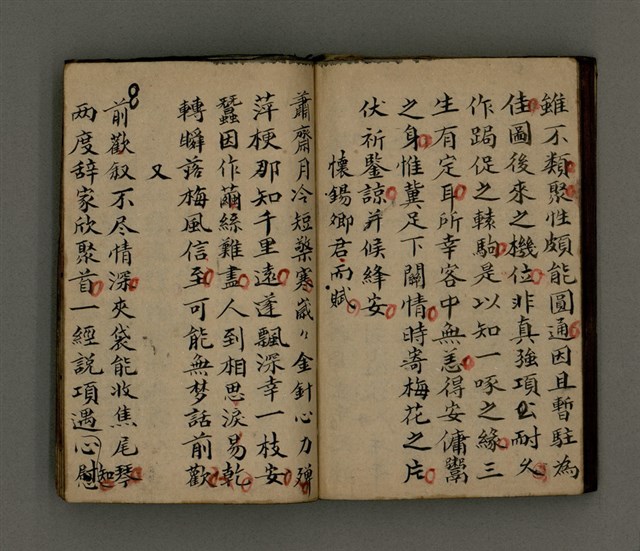 雖不類聚性頗能圓通因且暫駐為
佳圖後來之機位非真強項公耐久
作跼促之轅駒是以知一啄之緣三
生有定耳所幸客中無恙得安傭鬻
之身惟冀足下關情時寄梅花之片
伏祈鑒諒并候絳安
懷錫卿君而賦
蕭齋月冷短檠寒歲々金針心力殫
萍梗那知千里遠蓬飄深幸一枝安
蠶因作繭絲難盡人到相思淚易乾
轉瞬落梅風信至可能無梦話前歡
又
前歡叙不尽情深夾袋能收焦尾琴
两度辞家欣聚首一經說項遇心慰知